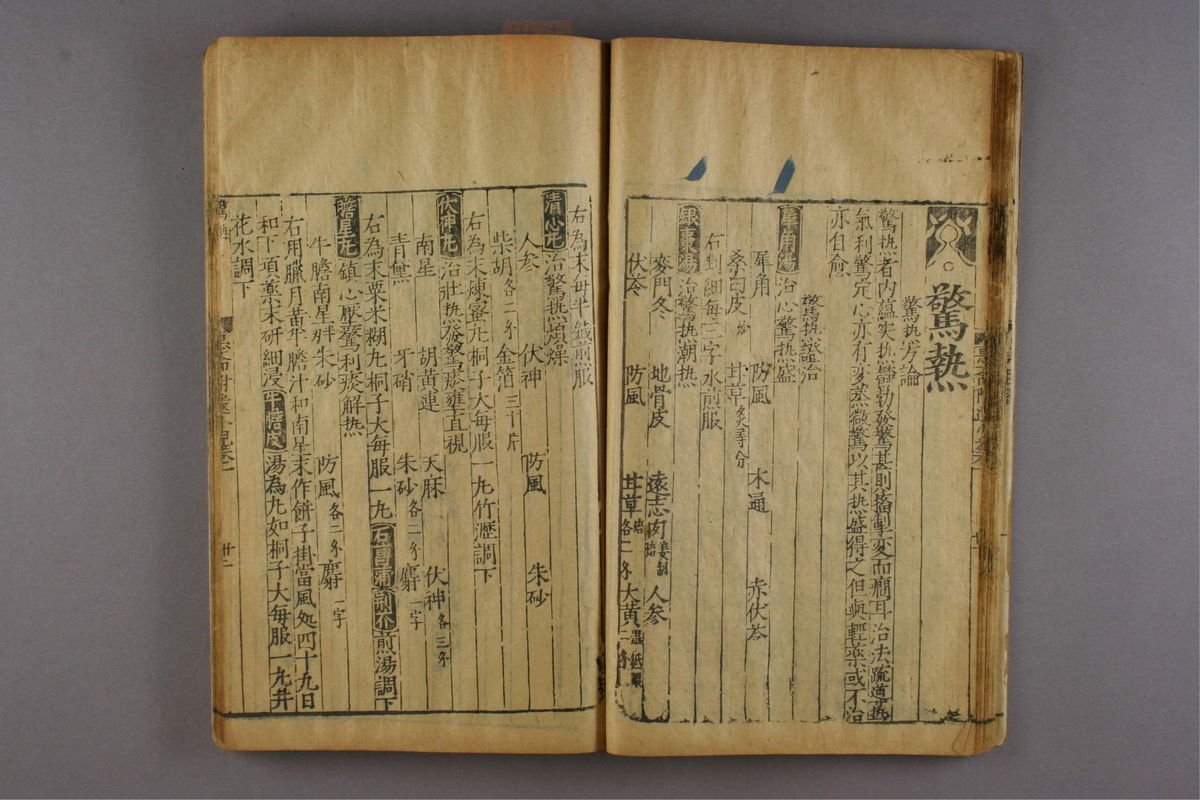 驚熱
驚熱方論
驚热者内蘊实热欝勃發驚甚則搐掣变而癇耳治法疏導热
氣利驚定心亦有变蒸微驚以其热盛得之但與輕藥或不治
亦自愈
驚热證治
犀角湯 治心驚热盛
犀角 防風 木通 赤伏苓
桑白皮炒 甘草炙等分
右剉細每三字水煎服
銀棗湯 治驚热潮热
麥門冬 地骨皮 遠志肉姜制焙 人参
伏苓 防風 甘草焙各二分 大黄
右為末每半錢煎服
清心丸 治驚热煩燥
人参 伏神 防風 朱砂
柴胡各二分 金箔三十片
右為末煉蜜丸桐子大每服一丸竹瀝調下
伏神丸 治壯热發驚痰壅直視
南星 胡黄連 天麻 伏神各三分
青黛 牙硝 朱砂各二分 麝一字
右為末粟米糊丸桐子大每服一丸石菖蒲荊芥煎湯調下
膽星丸 鎮心壓驚利痰解热
牛膽南星 朱砂 防風各二分 麝一字
右用臘月黄牛膽汁和南星末作餅子掛當風処四十九日
和下項藥末研細浸牛膽皮湯為丸如桐子大每服一丸井
花水調下